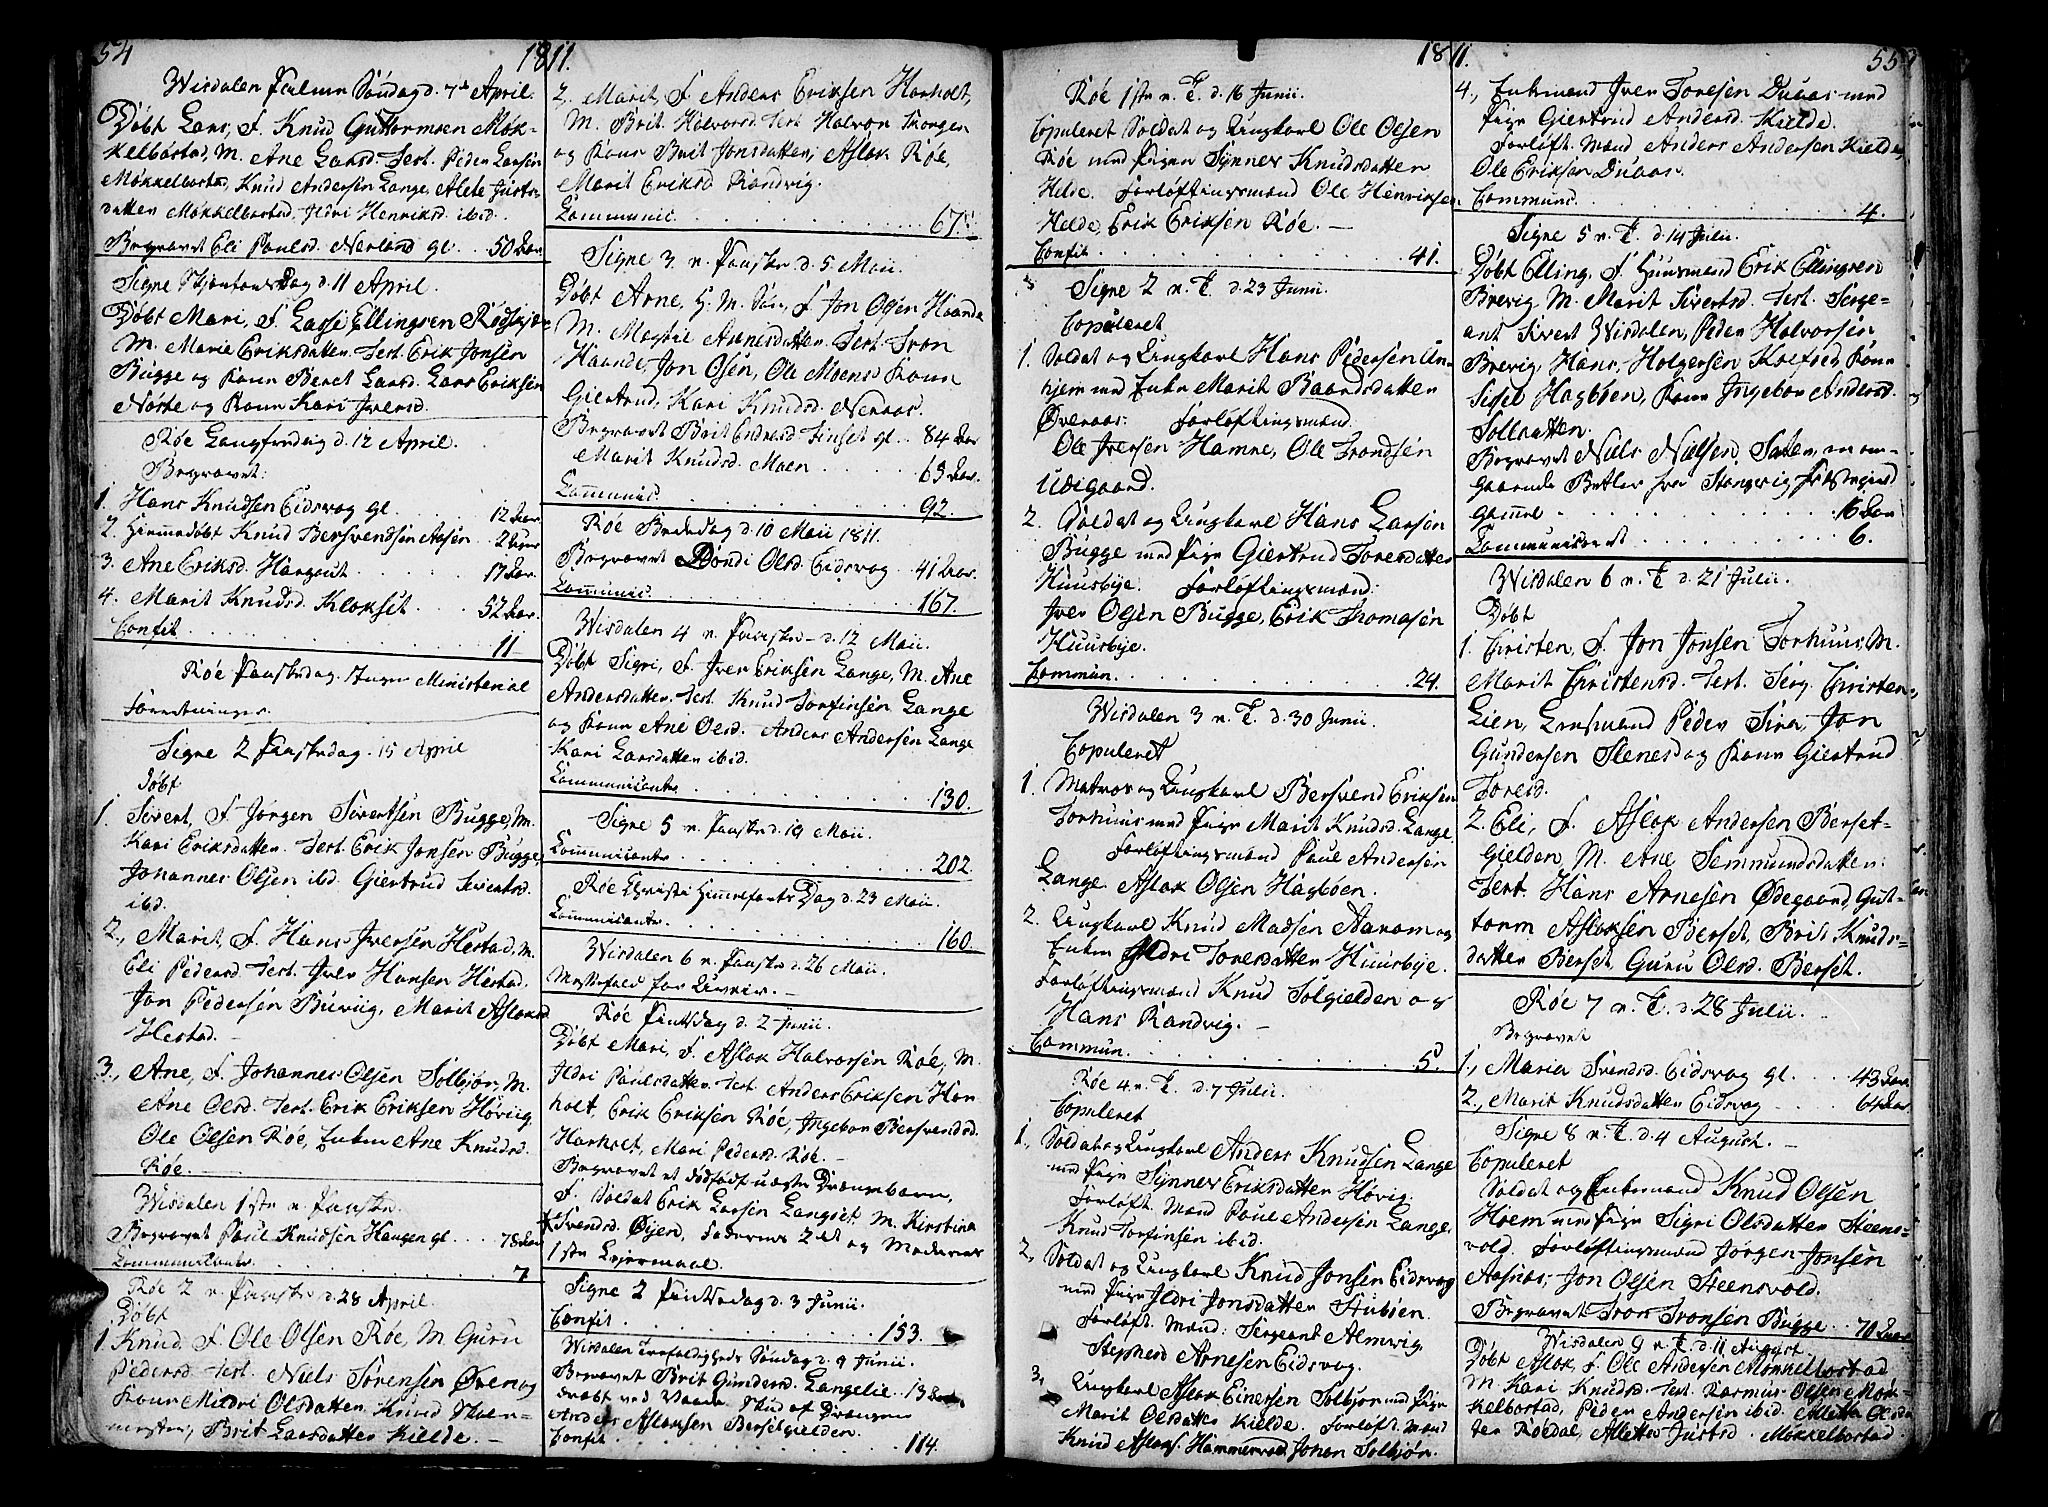 54
1811.
Wisdalen Palme Søndag d. 7de April.
Døbt Lars, F. Knud Guttormsen Møk-
kelbostad, M. Ane Larsd. Test. Peder Larsen
Møkkelbostad, Knud Andersen Lange, Alete Justs-
datter Møkkelbostad, Ildri Henriksd. ibid.
Begravet Eli Paulsd. Nerland gl. .. 50 Aar.
Signe Skjertorsdag d. 11 April.
Døbt Mari, F. Lars Ellingsen
M. Marie Eriksdatter. Test. Erik Jonsen
Bugge og Kone Beret Larsd. Lars Eriksen
Nøste og Kone Kari Iversd.
Røe Langfredag d. 12 April.
Begravet:
1. Hans Knudsen Eidsvog gl. . . . 12 Aar.
2. Hiemmedøbt Knud Bersvendsen Aasen . . 2
3. Ane Eriksd. . . . . 17 Aar.
4. Marit Knudsd. Klokset . . . . 52 Aar.
Confit. . . . . . . . 11
Røe Paaskedag. Ingen Ministerial
Forretninger.
Signe 2 Paaskedag. 15 April
Døbt
1. Sivert, F. Jørgen Sivertsen Bugge, M.
Kari Eriksdatter. Test. Erik Jonsen Bugge,
Johannes Olsen ibid. Giertrud Sivertsd.
ibid.
2., Marit, F. Hans Iversen Hestad, M.
Eli Pedersd. Test. Iver Hansen Hestad.
Jon Pedersen Buviig, Marit Aslaksd.
Hestad. —
3., Ane, F. Johannes Olsen Solbjør, M.
Ane Olsd. Test. Erik Eriksen Høviig,
Ole Olsen Røe, Enken Ane Knudsd.
Røe.
Wisdalen 1ste p. Paaske.
Begravet Paul Knudsen Haugen gl. . . . 78 Aar
Communicanter . . . . . . 7
Røe 2 p. Paaske d. 28 April.
Døbt
1. Knud, F. Ole Olsen Røe, M. Guru
Pedersd. Test. Niels Sørensen Øverag
Kone Mildri Olsdatter. Knud Skoe-
mester, Brit Larsdatter Kielde. —
2, Marit, F. Anders Eriksen Harholt,
M. Brit Halvorsd. Test. Halvor
og Kone Brit Jonsdatter, Aslak Røe,
Marit Eriksd Randvig.
Communic. . . . . . . . 67
Signe 3 p. Paaske d. 5 Maii.
Døbt Arne, F. Jon Olsen Haande
M. Arnesdatter. Test. Tron
Haande, Jon Olsen, Ole Moens Kone
Giertrud, Kari Knudsd. Neraas.
Begravet Brit Endresd. Tinset gl. .. 84 Aar
Marit Knudsd. Moen . . . . 63 Aar.
Communic. . . . . . . 92.
Røe Bededag d. 10 Maii 1811.
Begravet Dondi Olsd. Eidsvog . . 41 Aar.
Communic. . . . . . . 167.
Wisdalen 4 p. Paaske d. 12 Maii.
Døbt Sigri, F. Iver Eriksen Lange, M. Ane
Andersdatter. Test. Knud Torfinsen Lange
og Kone Ane Olsd. Anders Andersen Lange
Kari Larsdatter ibid.
Communicanter . . . . . . 130.
Signe 5 p. Paaske d. 19 Maii.
Communicanter . . . . . . 202.
Røe Christi Himmelfarts Dag d. 23 Maii.
Communicanter . . . . . . 160.
Wisdalen 6 p. Paaske d. 26 Maii.
Messefald for Uveir. —
Røe Pintsdag d. 2 Junii.
Døbt Mari, F. Aslak Halvorsen Røe, M.
Ildri Paulsdatter. Test. Anders Eriksen Har-
holt, Erik Eriksen Røe, Ingebor Bersvendsd.
Mari Pedersd. Røe. —
Begravet et dødfødt uægte Drængebarn,
F. Soldat Erik Larsen Langset, M. Kirstina
Svendsd. Øijen, Faderens 2det og Moderens
1ste Leiermaal.
Signe 2 Pintsedag d. 3 Junii.
Confit. . . . . . . . 153.
Wisdalen Trefoldigheds Søndag d. 9 Junii.
Begravet Brit Gundersd. Langelie . . 13 Aar
dræbt ved Vaade Skud af Drængen
Anders Aslaksen Bersetgielden.
Confit. . . . . . . . 114.
1811.
55
Røe 1ste p. T. d. 16 Junii.
Copuleret Soldat og Ungkarl Ole Olsen
Røe med Pigen Synnev Knudsdatter
Helde. Forløftningsmænd Ole Henriksen
Helde, Erik Eriksen Røe. —
Confit. . . . . . . . 41.
Signe 2 p. T. d. 23 Junii.
Copuleret
1. Soldat og Ungkarl Hans Pedersen Un-
hjem med Enke Marit Baardsdatter
Øveraas. Forløftningsmænd.
Ole Iversen Hamne, Ole Trondsen
Udigaard.
2. Soldat og Ungkarl Hans Larsen
Bugge med Pige Giertrud Toresdatter
Huusbye. Forløftningsmænd:
Iver Olsen Bugge, Erik Thomasen
Huusbye.
Commun. . . . . . . . 24.
Wisdalen 3 p. T. d. 30 Junii.
Copuleret
1. Matros og Ungkarl Bersvend Eriksen
Torhuus med Pige Marit Knudsd. Lange.
Forløftningsmænd Paul Andersen
Lange. Aslak Olsen Hagbøen.
2. Ungkarl Knud Madsen Aarom og
Enken Ildri Toresdatter Huusbye.
Forløftningsmænd Knud Solgielden og
Hans Randvig. —
Commun. . . . . . . . 5.
Røe 4 p. T. d. 7 Julii.
Copuleret
1., Soldat og Ungkarl Anders Knudsen Lange
med Pige Synnev Eriksdatter Høvig.
Forløft. Mænd Paul Andersen Lange,
Knud Torfinsen ibid.
2, Soldat og Ungkarl Knud Jonsen Eidsvog
med Pige Ildri Jonsdatter Stubøen.
Forløft. Mænd: Sergeant Almvig
Stephen Arnesen Eidsvog.
3, Ungkarl Aslak Einersen Solbjør med Pige
Marit Olsdatter Kielde. Forløft. Mænd
Knud Aslaks. Hammervold Johan Solbjør.
4., Enkemand Iver Toresen Dugas med
Pige Giertrud Andersd. Kielde.
Forløft. Mænd Anders Andersen Kielde,
Ole Eriksen
Communi. . . . . . . . 4.
Signe 5 p. T. d. 14 Julii.
Døbt Elling, F. Huusmand Erik Ellingsen
Brevig, M. Marit Sivertsd. Test. Serge-
ant Sivert Wisdalen, Peder Halvorsen
Brevig, Hans Holgersen Kone
Sidsel Hagbøen, Kone Ingebor Andersd.
Begravet Niels Nielsen en om-
gaaende Betler fra Stangvig Præstegield
Gammel . . . . . . . 16 Aar
Communiceret . . . . . . 6.
Wisdalen 6 p. T. d. 21 Julii.
Døbt
1. Christen, F. Jon Jonsen Torhuus, M.
Marit Christensd. Test. Serg. Christen
Lien, Lensmand Peder Sira, Jon
Gundersen Stenes og Kone Giertrud
Toresd.
2. Eli, F. Aslak Andersen Berset-
gielden, M. Ane Semmundsdatter.
Test. Hans Arnesen Ødegaard, Gut-
torm Aslaksen Berset, Brit Knuds-
datter Berset, Guru Olsd. Berset.
Røe 7 p. T. d. 28 Julii.
Begravet
1., Maria Svendsd. Eidsvog gl. . . . 43 Aar.
2., Marit Knudsdatter Eidsvog . . . 64 Aar
Signe 8 p. T. d. 4 August. —
Copuleret
Soldat og Enkemand Knud Olsen
Hoem med Pige Sigri Olsdatter Steens-
vold. Forløftningsmænd Jørgen Jonsen
Aasnæs, Jon Olsen Steensvold.
Begravet Tron Tronsen Bugge . . 70 Aar
Wisdalen 9 p. T. d. 11 August.
Døbt Aslak, F. Ole Andersen Møkkelbostad
M. Kari Knudsd. Test. Rasmus Olsen Møk-
kelbostad, Peder Andersen ibid. Alette Olsda
ter Røedal, Alette Justsd. Møkkelbostad